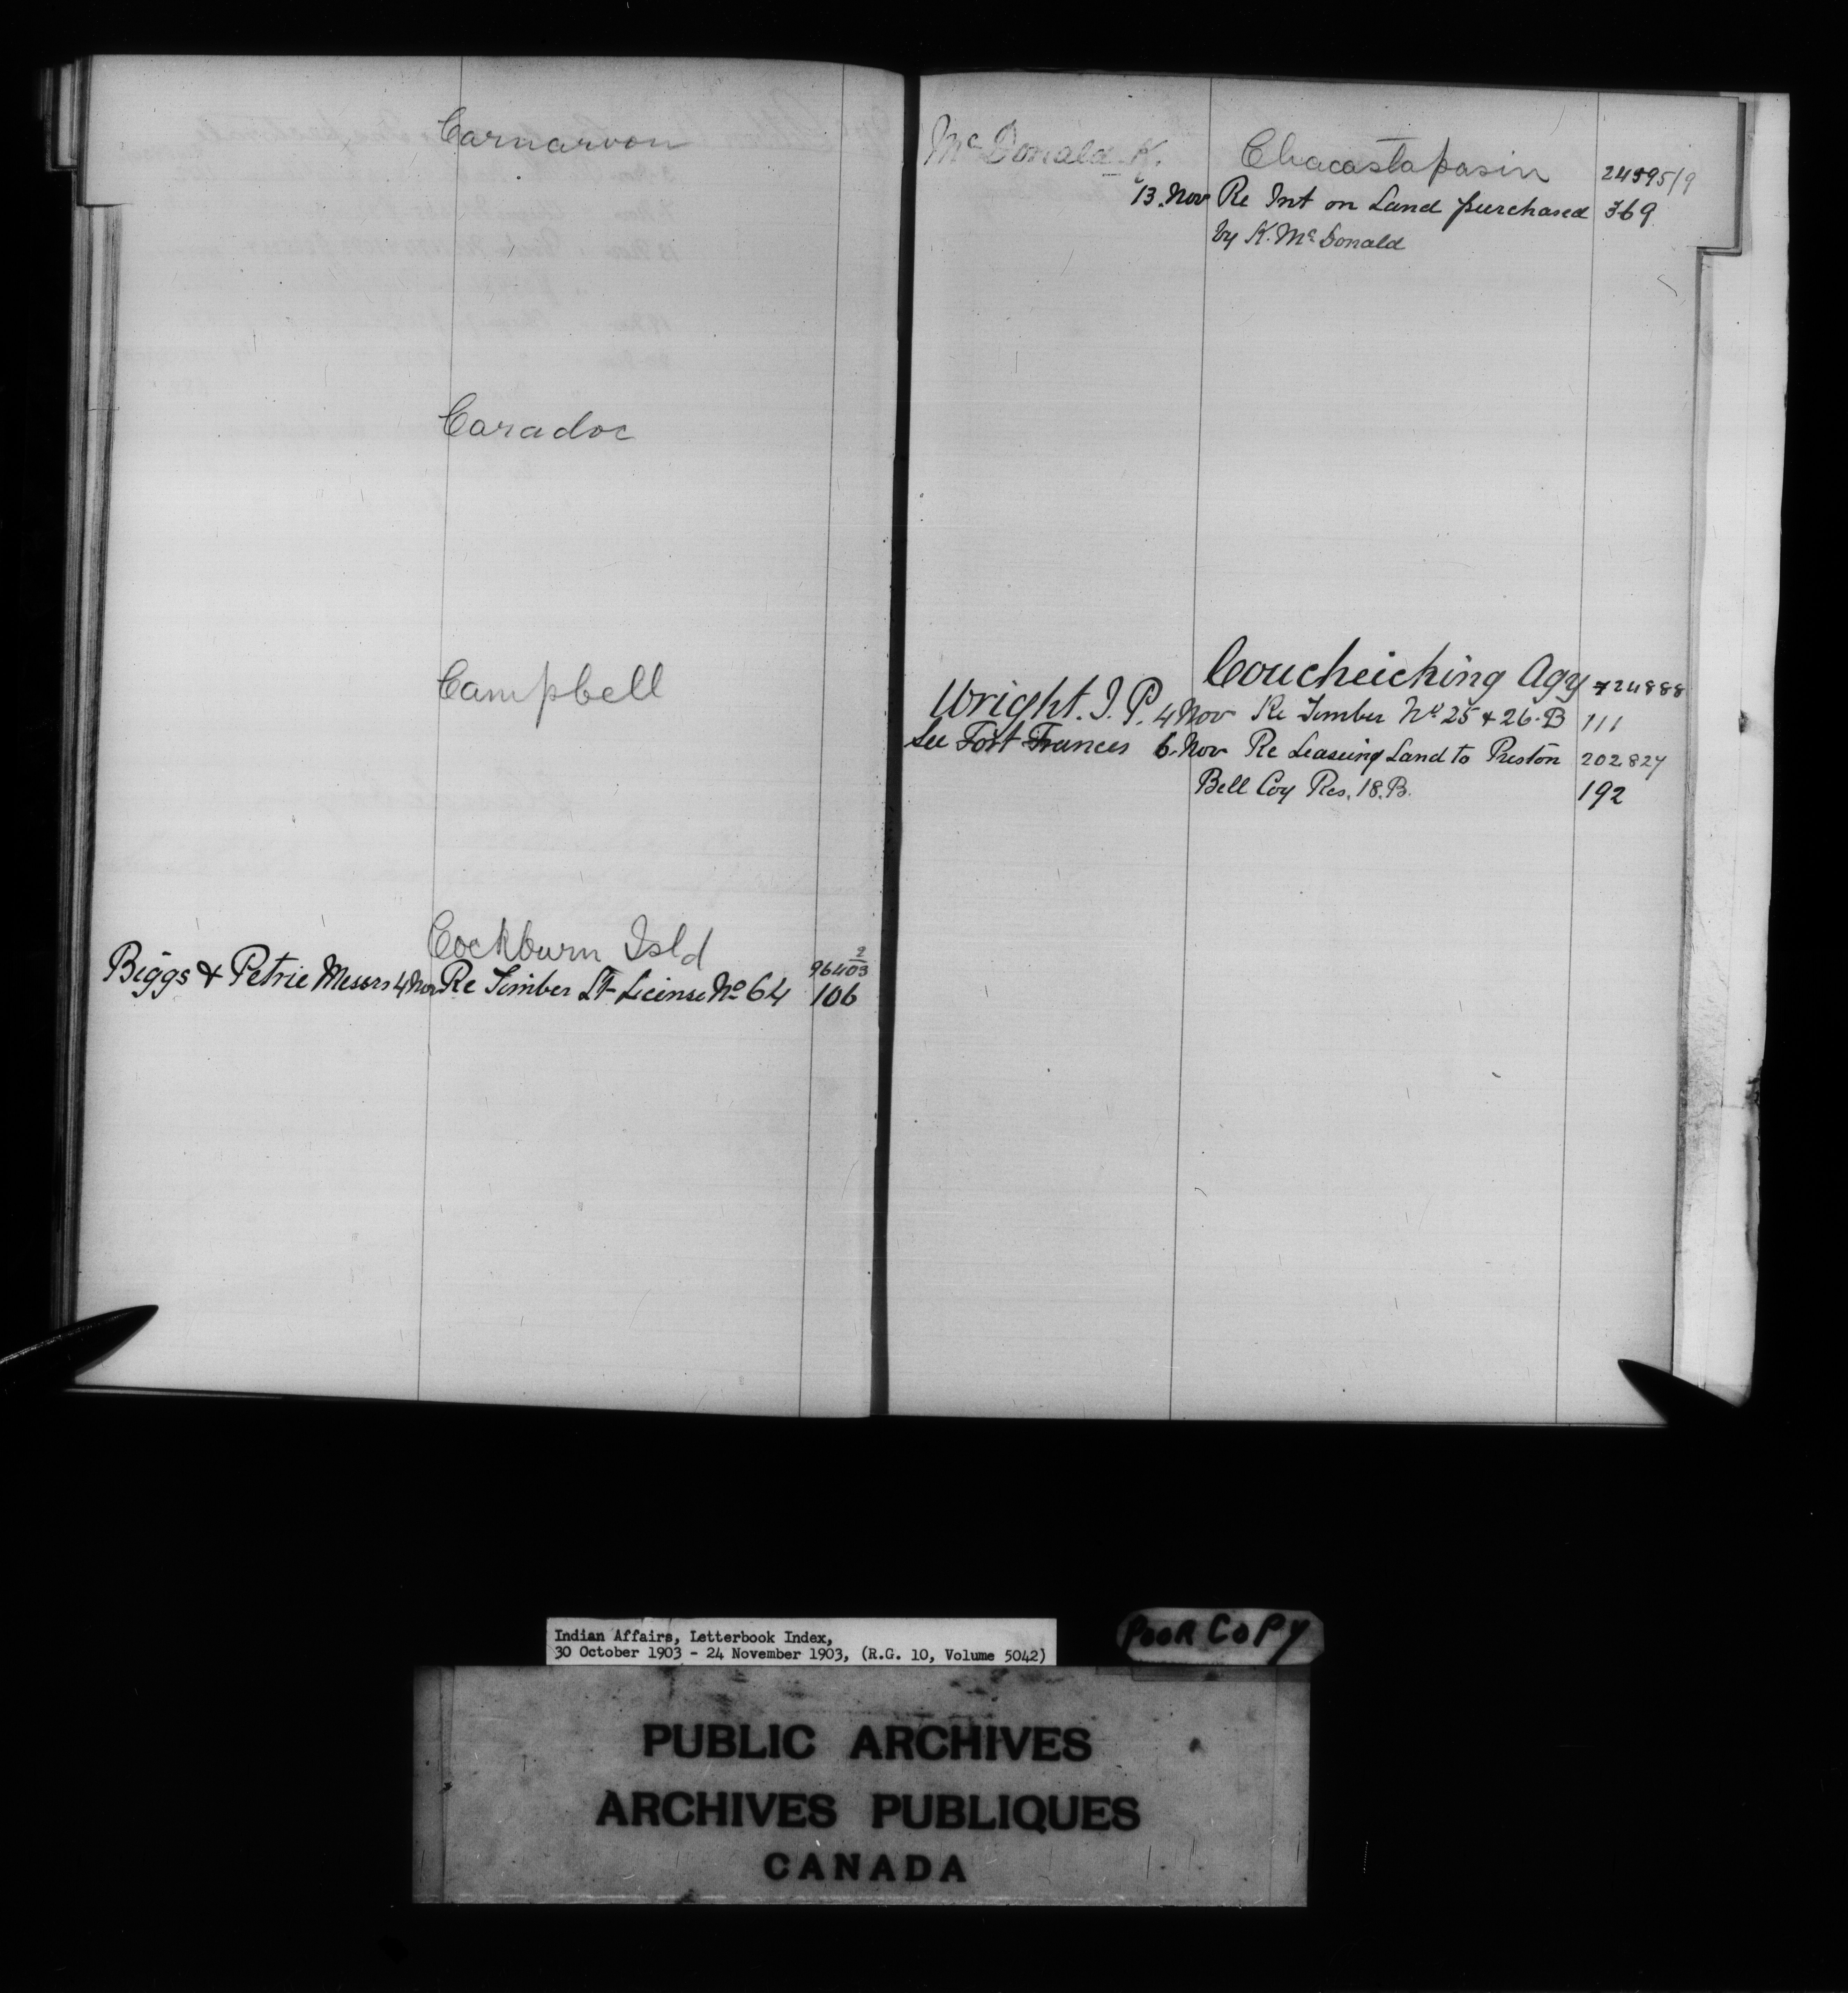 Carnarvon
Caradoc
Campbell
Cockburn Isld
Biggs & Petrie Messrs 4 Nov Re Timber Lt License No 64 96403 2
106
McDonald K. Chacastapasin 24595/9
13. Nov Re Int on Land purchased 369
by K. Mc Donald
Coucheiching Agy 724888
Wright. J. P. 4 Nov Re Timber No 25 & 26. B 111
See Fort Frances 6. Nov Re Leaseing Land to Preston 202827
Bell Coy Res. 18. B. 192
Indian Affairs, Letterbook Index,
30 October 1903 - 24 November 1903, (R.G. 10, Volume 5042)
POOR COPY
PUBLIC ARCHIVES
ARCHIVES PUBLIQUES
CANADA